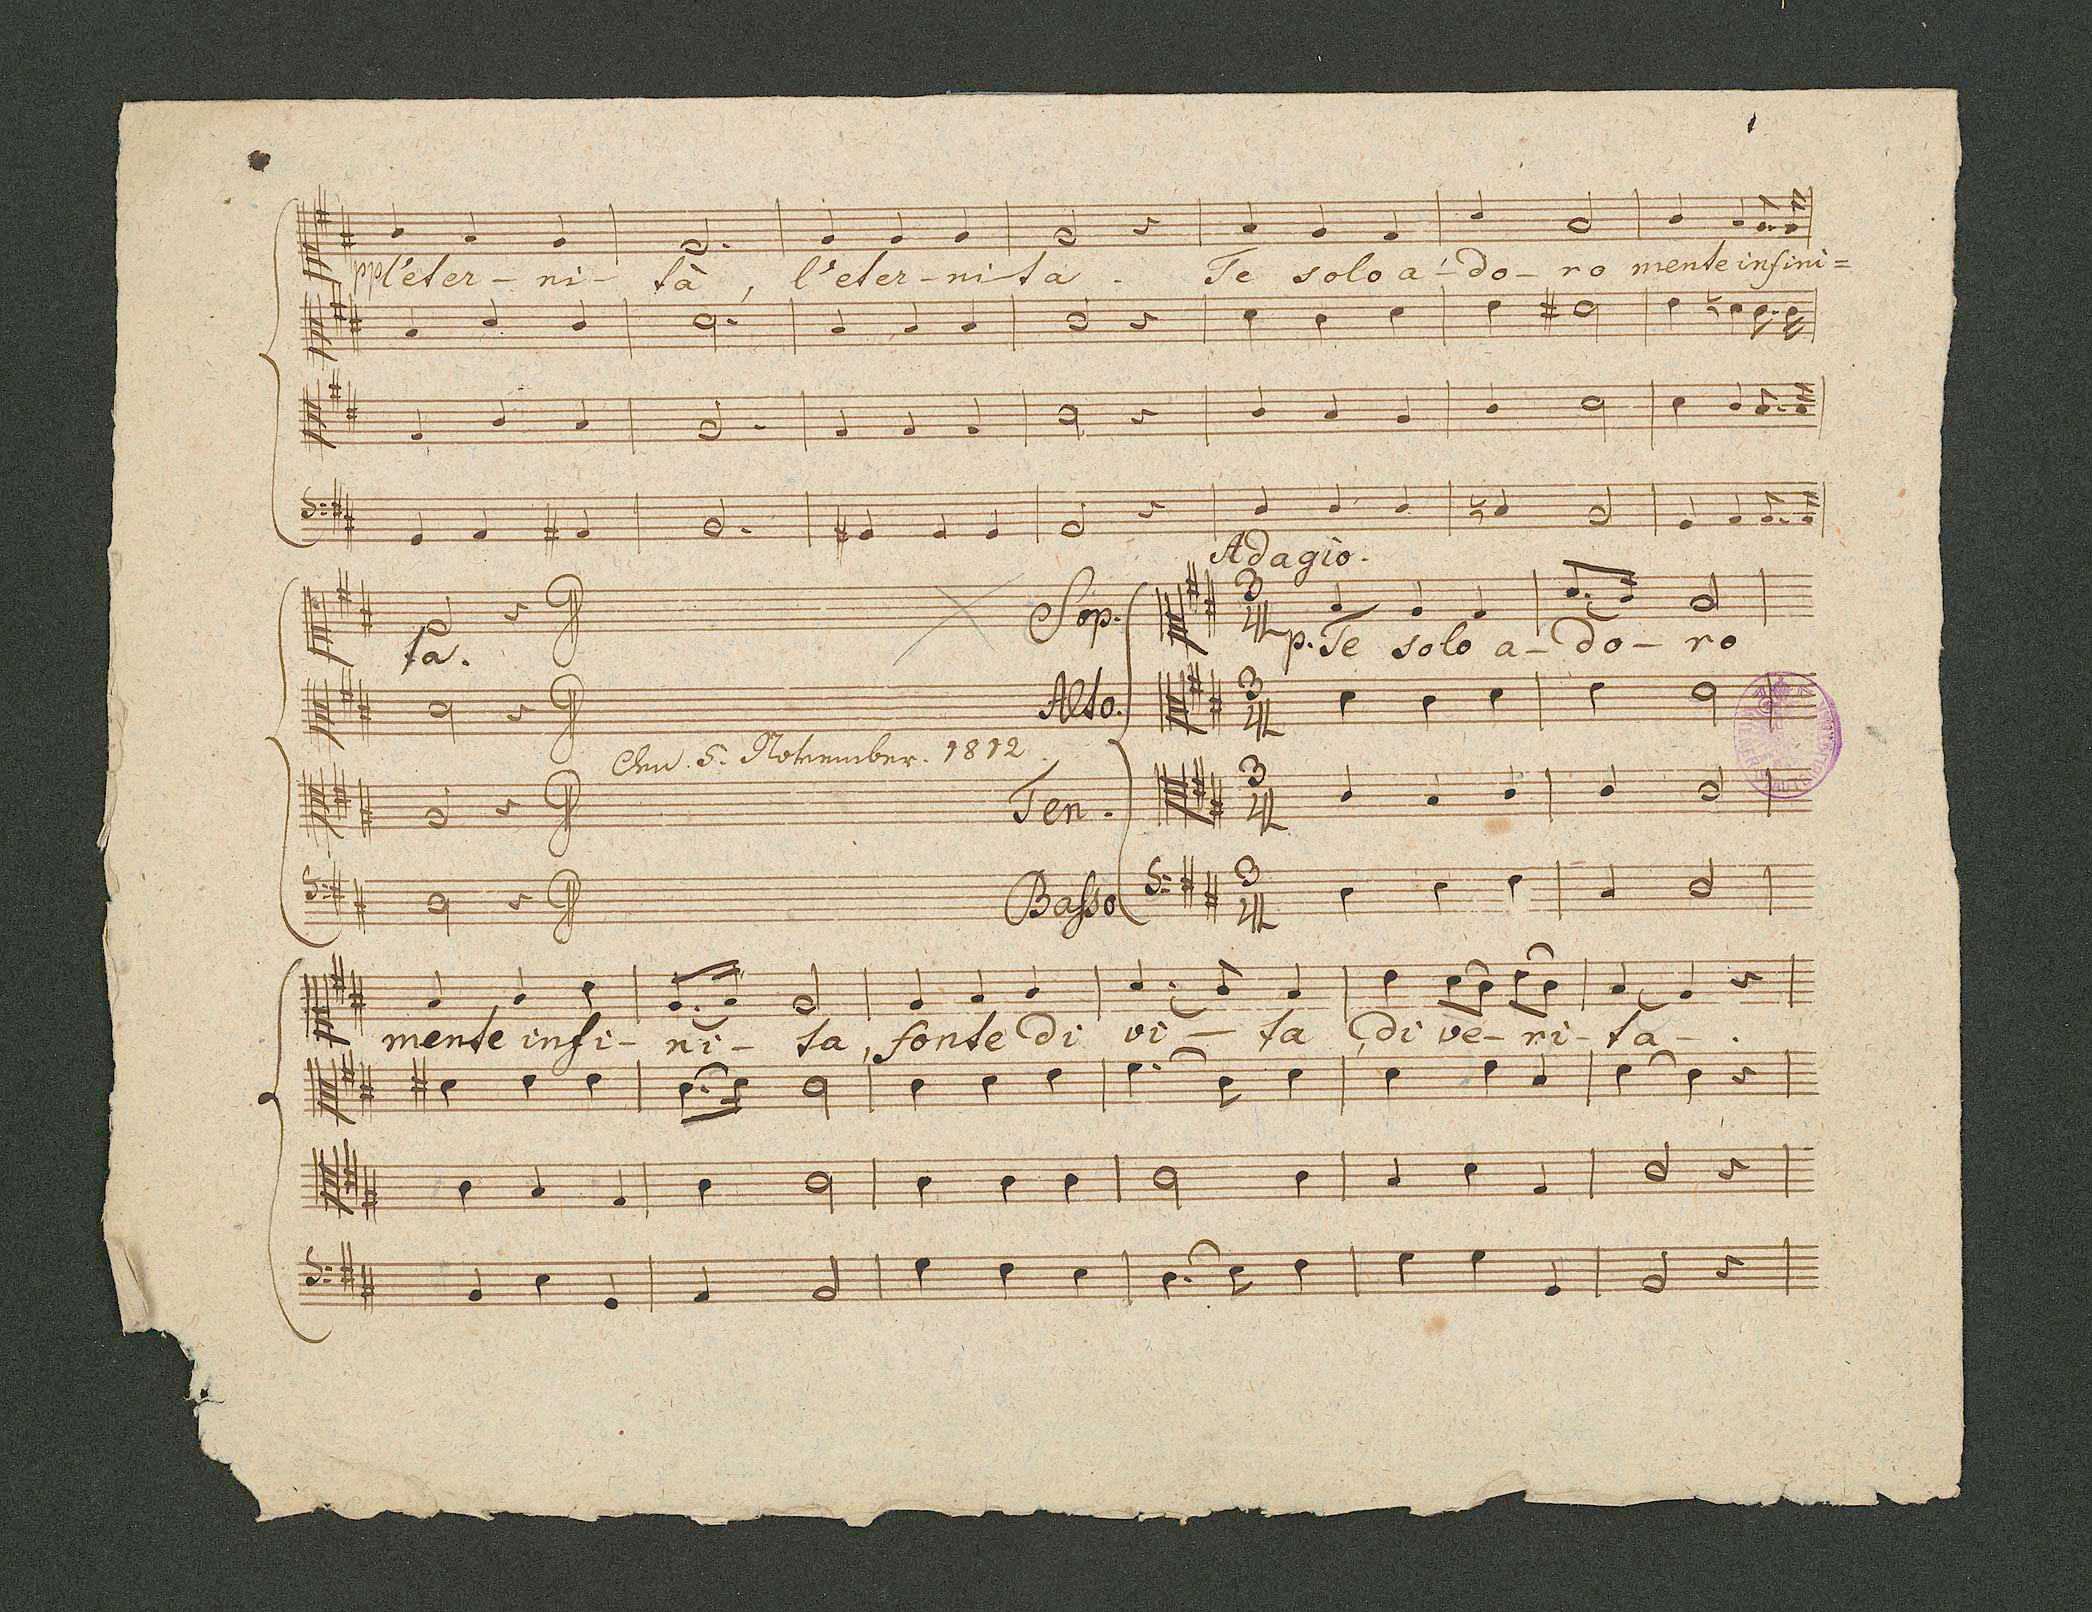 l'eter-ni-tà, l'eter-ni-ta. Te solo a-do-ro mente infini=
Adagio.
ta.
Sop.
p. Te solo a-do-ro
Alto.
Den 5. November. 1812.
Ten.
Basso
mente infi-ni-ta, fonte di vi-ta, di ve-ri-ta-.